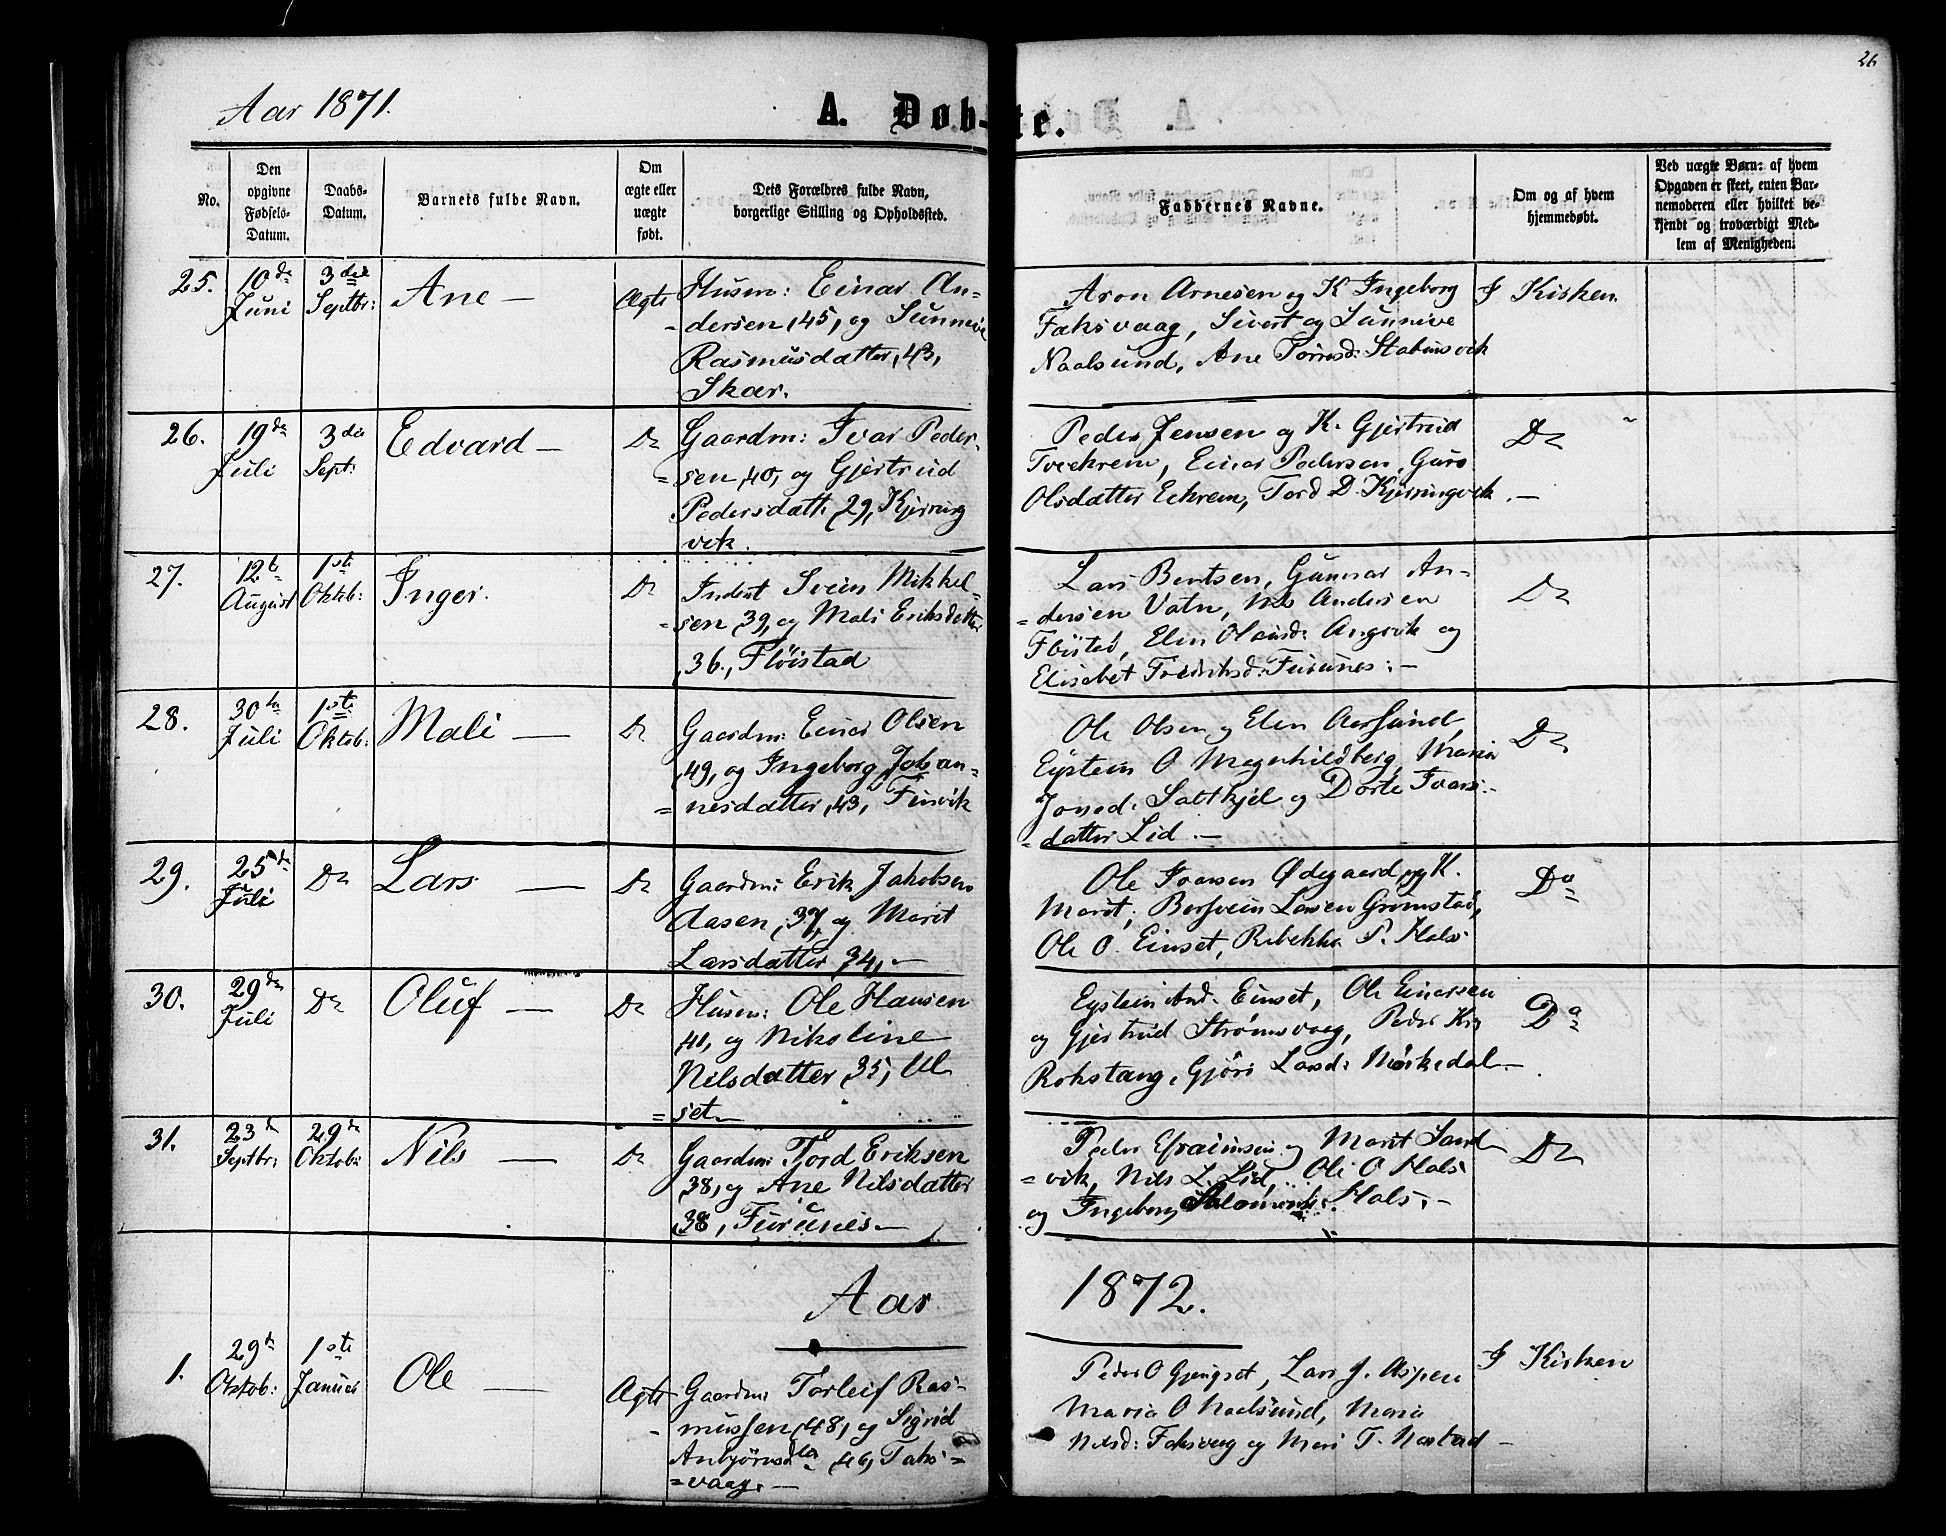 26
Aar 1871.
A. Døb-te.
No.
Den opgivne Fødsels-Datum.
Daabs-Datum.
Barnets fulde Navn.
Om ægte eller uægte født.
Dets Forældres fulde Navn, borgerlige Stilling og Opholdssted.
Faddernes Navne.
Om og af hvem hjemmedøbt.
Ved uægte Børn: af hvem Opgaven er skeet, enten Barnemoderen eller hvilket bekjendt og troværdigt Medlem af Menigheden.
25.
10de Juni
3die Septbr:
Ane —
Ægte
Husm: Einar An-
dersen, 45, og Sunneve
Rasmusdatter, 43,
Skar.
Aron Arnesen og K Ingeborg
Faksvaag, Sivert og Sunnive
Naalsund, Ane Torresd: Stabensvik
I Kirken.
26.
19de Juli
3die Sept:
Edvard —
Do
Gaardm: Ivar Peder-
sen, 40, og Gjertrud
Pedersdatt: 29, Kjerring
vik.
Peder Jensen og K. Gjertrud
Tveekrem, Einar Pedersen, Guro
Olsdatter Eekrem, Tord D. Kjerringvik. —
Do
27.
12te August
1ste Oktob:
Inger.
Do
Inderst Svein Mikkel-
sen, 39, og Mali Eriksdatter
36., Flöistad
Lars Bentsen, Gunnar An-
dersen Vatn, Nils Andersen
Flöistad, Elen Olausd: Angvik og
Elisabet Fredriksd: Furunes: —
Do
28.
30te Juli
1ste Oktob:
Mali —
Do
Gaardm: Einar Olsen
49, og Ingeborg Johan-
nesdatter, 43,
Ole Olsen og Elen Aarsund,
Eystein O Magerhildberg, Maria
Jonsd. Saltkjel og Dorte Ivars-
datter Lid. —
Do
29.
25de Juli
Do
Lars —
Do
Gaardm: Erik Jakobsen
Aasen, 37, og Marit
Larsdatter 34, —
Ole Ivarsen Ødegaard og K.
Marit, Bersvein Larsen Gromstad,
Ole O. Einset, Rebekka P. Hals
Do
30.
29de Juli
Do
Oluf —
Do
Husm: Ole Hansen
41, og Nikoline
Nilsdatter, 35, Ul
set. —
Eystein And. Einset, Ole Einarsen
og Gjertrud Strømsvaag, Peder
Rokstang, Gjöri Larsd: Mörkedal —.
Do
31.
23de Septbr:
29de Oktob:
Nils —
Do
Gaardm: Tjord Eriksen
38, og Ane Nilsdatter
38, Furunes —
Peder Efraimsen og Marit Sand
vik, Nils L. Lid, Ole O Hals
og Ingeborg Salomonsd: Hals. —
Do
Aar 1872.
1.
29de Oktob:
1ste Januar
Ole —
Ægte
Gaardm: Torleif Ras-
mussen, 48, og Sigrid
Anbjörnsdter, 46, Faks-
vaag. —
Peder O Gjengset, Lars J. Aspen
Maria O Naalsund, Maria
Nilsd: Faksvaag og Mari T. Nastad —
I Kirken